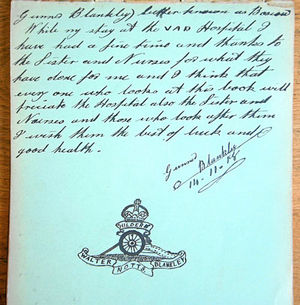 Gunnr Blankley, better known as
While my stay at the VAD Hospital I
have had a fine time and thanks to
the Sister and Nurses for what they
have done for me and I think that
every one who looks at this book will
the Hospital also the Sister and
Nurses and those who look after them
I wish them the best of luck and
good health.
Gunnr Blankley
14-11-18
HILDERIC
WALTER NOTTS BLANKLEY